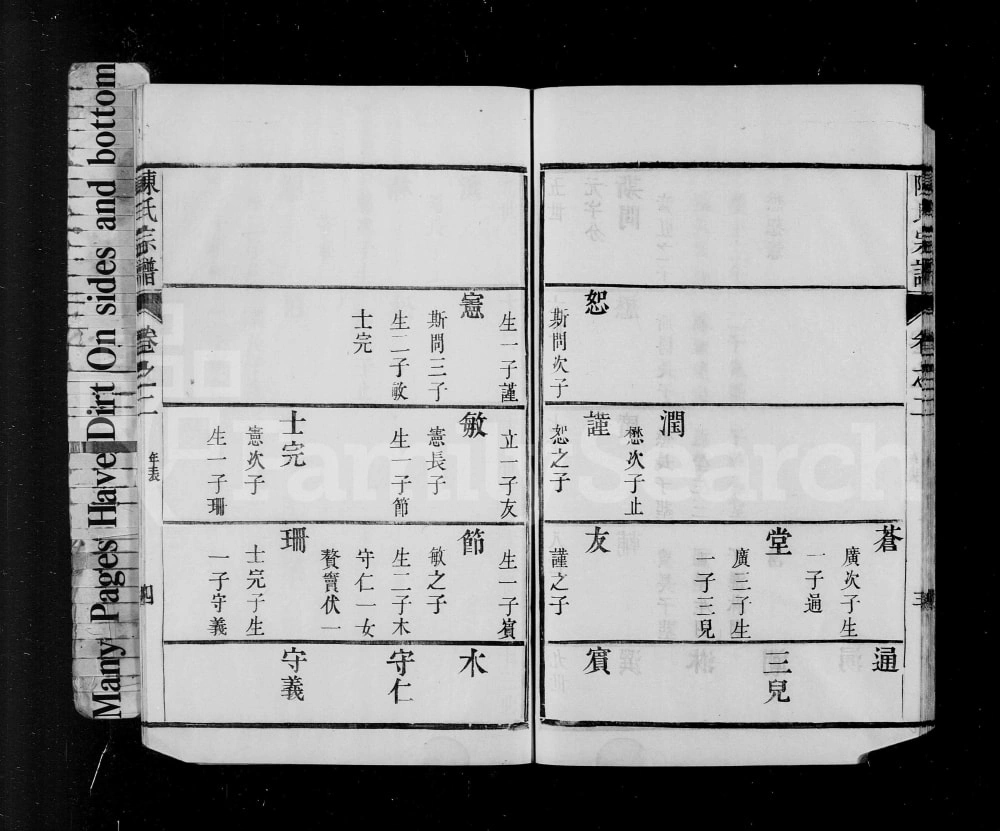 Many Pages Have Dirt On sides and bottom
陳氏宗譜
卷之二
三
恕
斯問次子
生一子謹
憲
斯問三子
生二子敏
士完
潤
懋次子止
謹
恕之子
立一子友
敏
憲長子
生一子節
士完
憲次子
生一子珊
蒼
廣次子生
一子通
堂
廣三子生
一子三兒
友
謹之子
生一子賓
節
敏之子
生二子木
守仁一女
贅竇伏一
珊
士完子生
一子守義
通
三兒
賓
木
守仁
守義
陳氏宗譜
卷之二
年表
四
FamilySearch